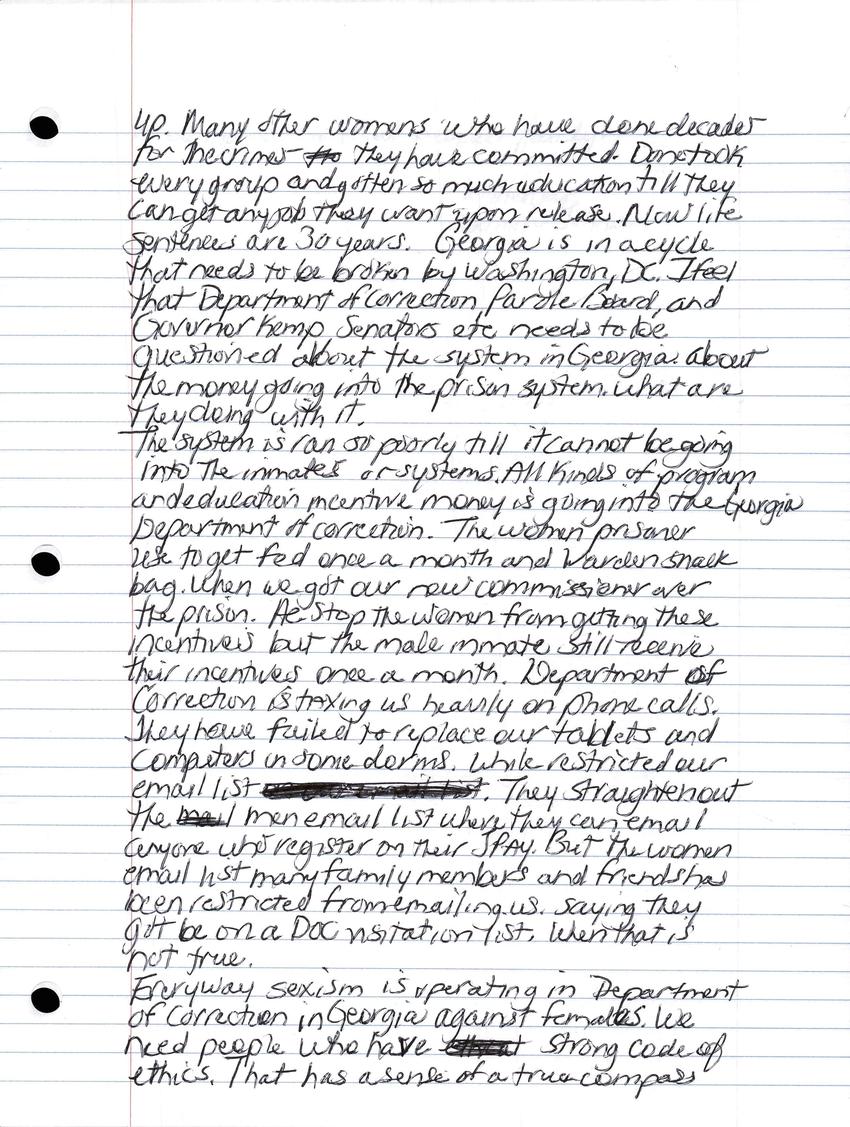 up. Many other womens who have done decades
for the crimes they have committed. Done took
every group and gotten so much education till they
can get any job they want upon release. Now life
sentences are 30 years. Georgia is in a cycle
that needs to be broken by Washington, DC. I feel
that Department of Correction, Parole Board, and
Governor Kemp Senators etc needs to be
questioned about the system in Georgia. about
the money going into the prison system. what are
they doing with it.
The system is ran so poorly till it cannot be going
into the inmates or systems. All Kinds of program
and education incentive money is going into the Georgia
Department of correction. The women prisoner
use to get fed once a month and Warden snack
bag. When we got our new commissioner over
the prison. He stop the women from getting these
incentiveis but the male inmate still receive
their incentives once a month. Department of
Correction is taxing us heavily on phone calls.
They have failed to replace our tablets and
Computers in some dorms. While restricted our
email list. They straighten out
the men email list where they can email
anyone who register on their JPAY. But the women
email list many family members and friends has
been restricted from emailing us. saying they
got be on a DOC visitation list. When that is
not true.
Everyway sexism is operating in Department
of Correction in Georgia against females. We
need people who have strong code of
ethics. That has a sense of a true compass